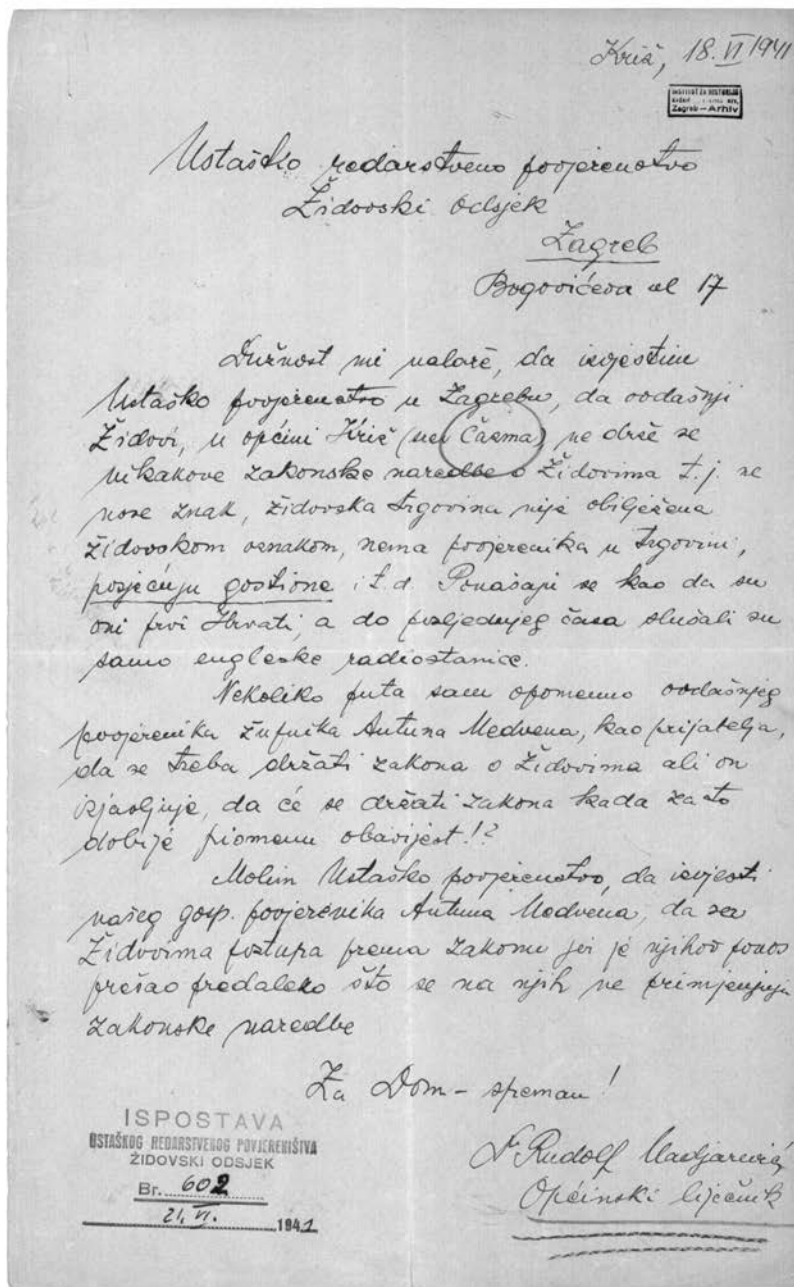 Križ, 18. VI 1941
INSTITUT ZA HISTORIJU
Zagreb – Arhiv
Ustaško redarstveno povjerenstvo
Židovski odsjek
Zagreb
Bogovićeva ul 17
Dužnost mi nalaže, da izvjestim
Ustaško povjerenstvo u Zagrebu, da ovdašnji
Židovi, u općini Križ (kod Čazma) ne drže se
nikakove zakonske naredbe o Židovima t.j. ne
nose znak, židovska trgovina nije obilježena
židovskom oznakom, nema povjerenika u trgovini,
posjećuju gostione i t.d. Ponašaju se kao da su
oni prvi Hrvati, a do posljednjeg časa slušali su
samo engleske radiostanice.
Nekoliko puta sam opomenuo ovdašnjeg
povjerenika župnika Antuna Medvena, kao prijatelja,
da se treba držati zakona o Židovima ali on
izjavljuje, da će se držati zakona kada za to
dobije pismenu obavijest!?
Molim Ustaško povjerenstvo, da izvjesti
našeg gosp. povjerenika Antuna Medvena, da sa
Židovima postupa prema zakonu jer je njihov ponos
prešao predaleko što se na njih ne primjenjuju
zakonske naredbe
Za Dom – spreman!
Dr Rudolf
Općinski liječnik
ISPOSTAVA
USTAŠKOG REDARSTVENOG POVJERENIŠTVA
ŽIDOVSKI ODSJEK
Br. 602
21. VI. 1941